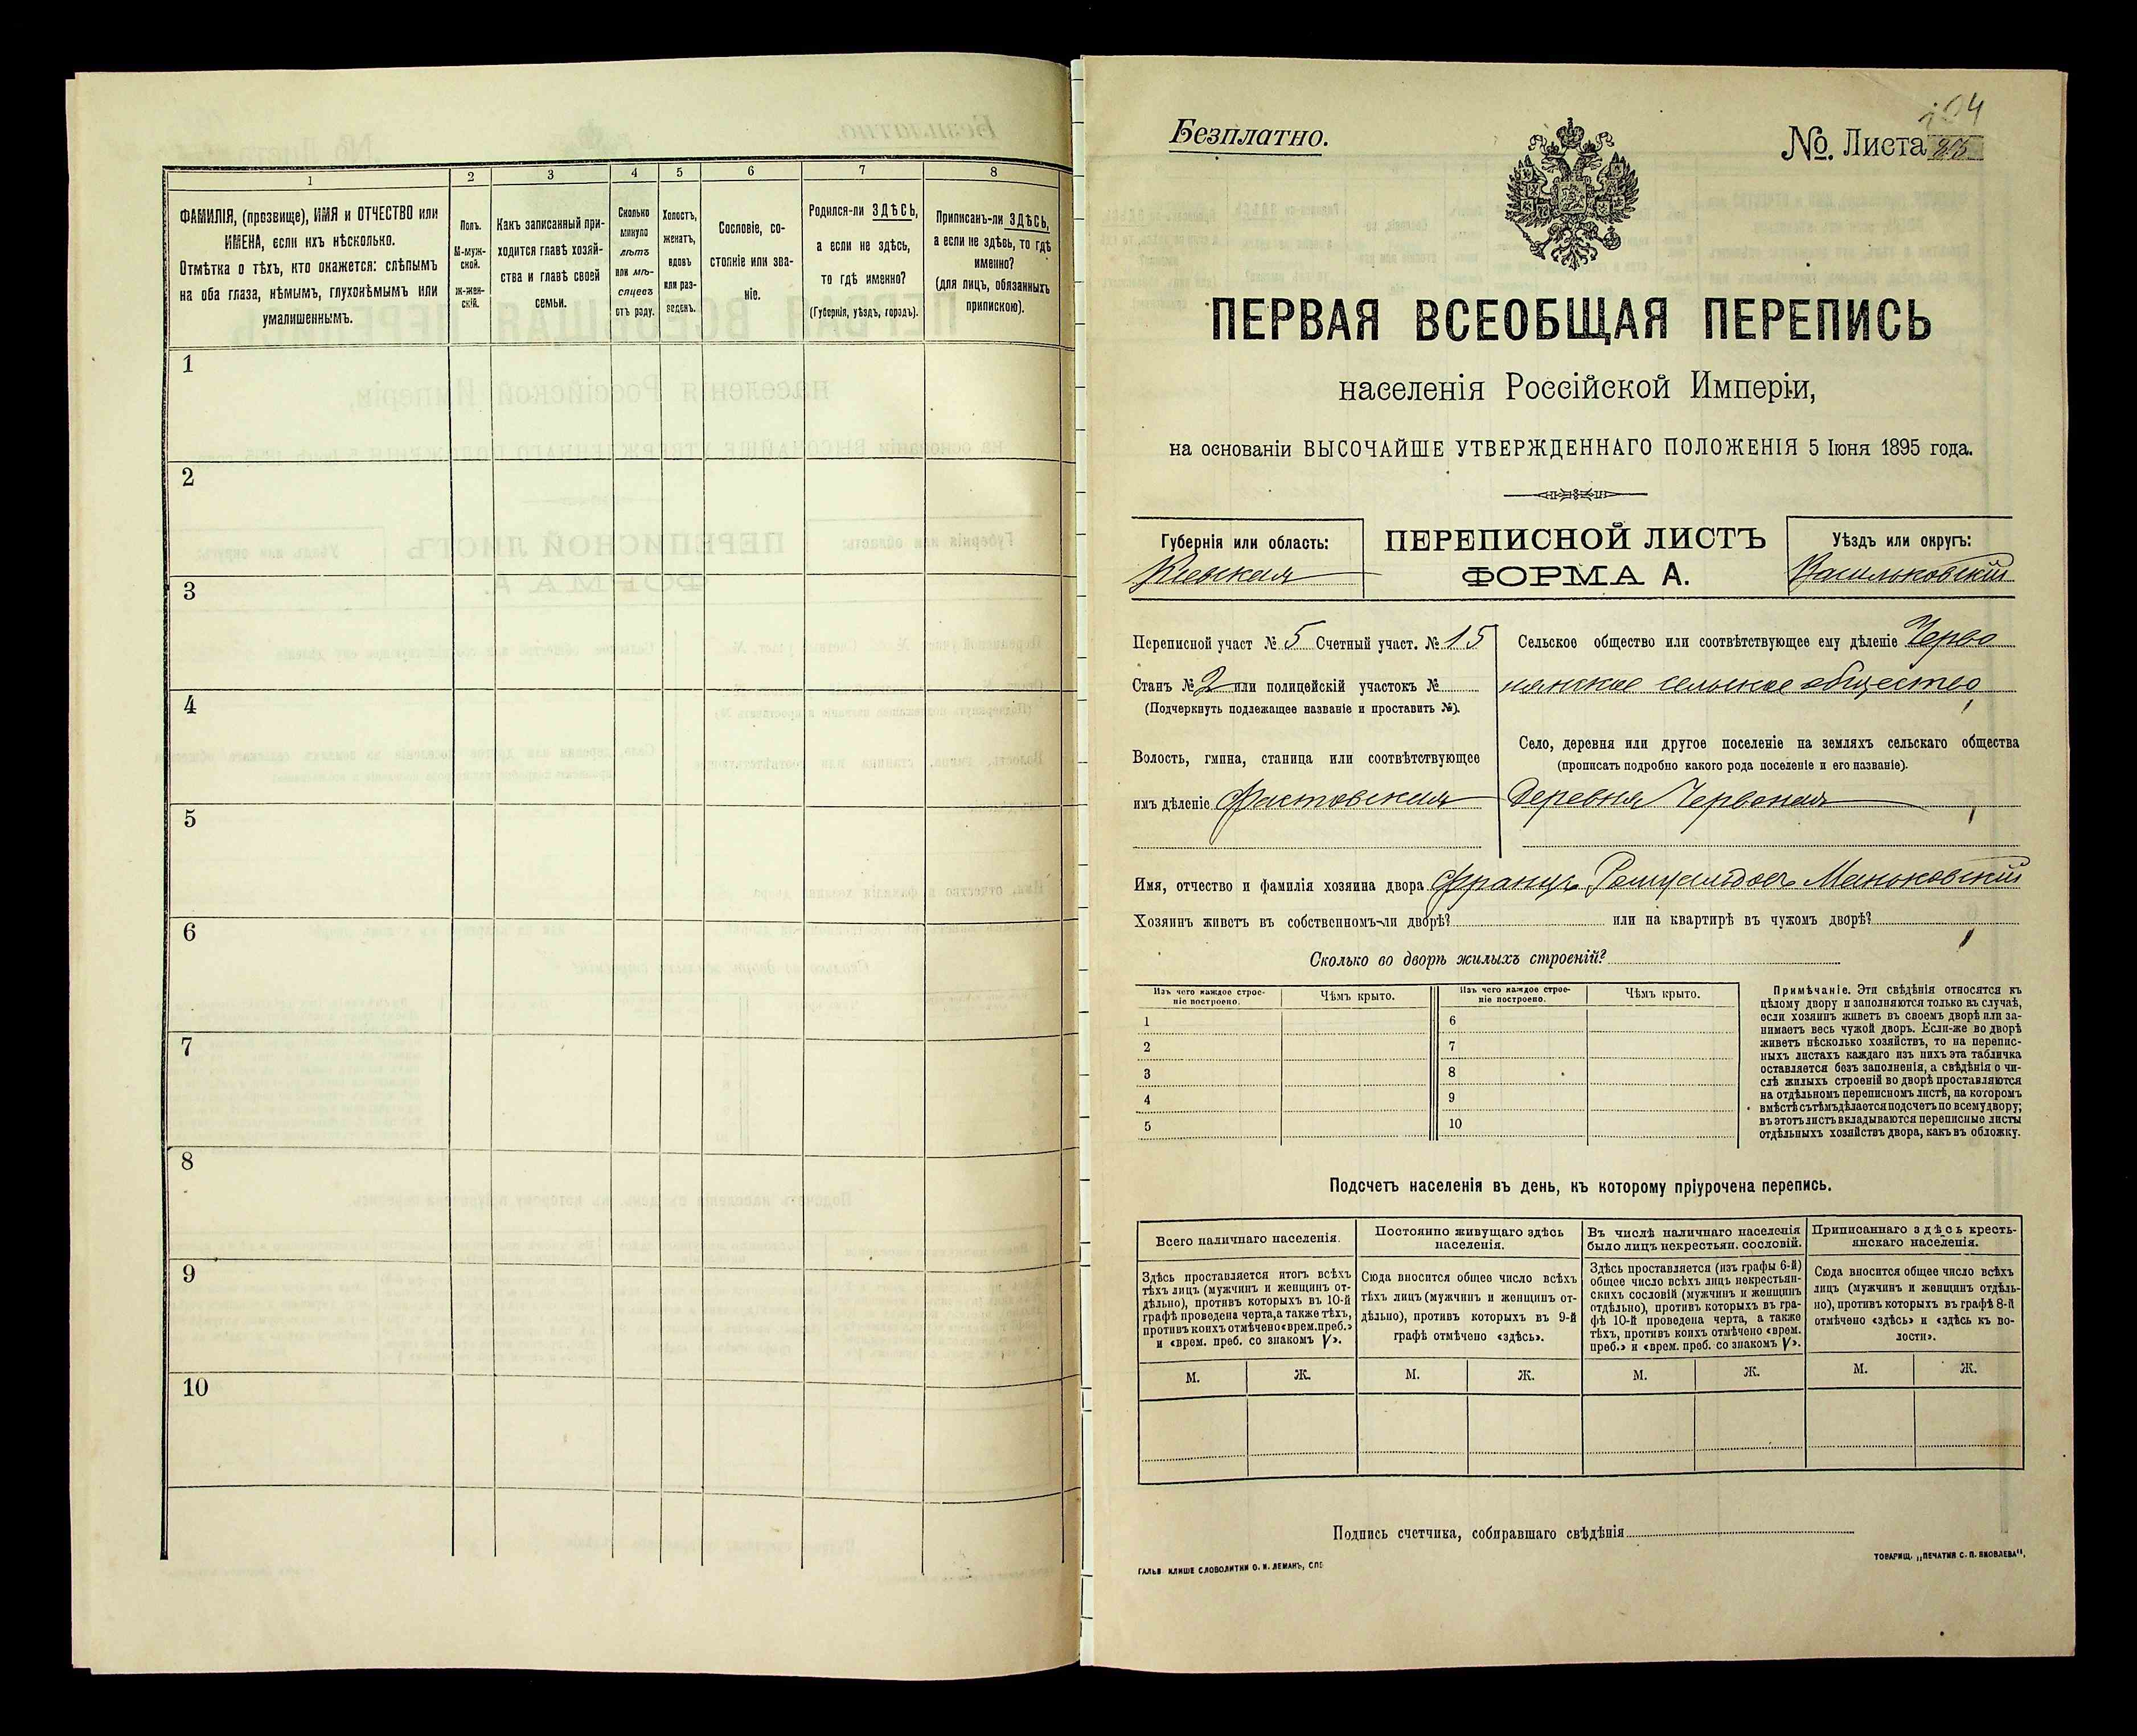 1
2
3
4
5
6
7
8
ФАМИЛІЯ, (прозвище), ИМЯ и ОТЧЕСТВО или
ИМЕНА, если ихъ нѣсколько.
Отмѣтка о тѣхъ, кто окажется: слѣпымъ
на оба глаза, нѣмымъ, глухонѣмымъ или
умалишеннымъ.
Полъ.
М-муж-
ской.
ж-жен-
скій.
Какъ записанный при-
ходится главѣ хозяй-
ства и главѣ своей
семьи.
Сколько
минуло
лѣтъ
или мѣ-
сяцевъ
отъ роду.
Холостъ,
женатъ,
вдовъ
или раз-
веденъ.
Сословіе, со-
стояніе или зва-
ніе.
Родился-ли ЗДѢСЬ,
а если не здѣсь,
то гдѣ именно?
(Губернія, уѣздъ, городъ).
Приписанъ-ли ЗДѢСЬ,
а если не здѣсь, то гдѣ
именно?
(для лицъ, обязанныхъ
припискою).
1
2
3
4
5
6
7
8
9
10
Безплатно.
№. Листа
ПЕРВАЯ ВСЕОБЩАЯ ПЕРЕПИСЬ
населенія Россійской Имперіи,
на основаніи ВЫСОЧАЙШЕ УТВЕРЖДЕННАГО ПОЛОЖЕНІЯ 5 Іюня 1895 года.
Губернія или область:
Кіевская
ПЕРЕПИСНОЙ ЛИСТЪ
ФОРМА А.
Уѣздъ или округъ:
Васильковскій
Переписной участ № 5 Счетный участ. № 15
Станъ № 2 или полицейскій участокъ №
(Подчеркнуть подлежащее названіе и проставить №).
Волость, гмина, станица или соотвѣтствующее
имъ дѣленіе Фастовская
Сельское общество или соотвѣтствующее ему дѣленіе Черво
нянское сельское общество
Село, деревня или другое поселеніе на земляхъ сельскаго общества
(прописать подробно какого рода поселеніе и его названіе).
Деревня Червоная
Имя, отчество и фамилія хозяина двора Францъ Ромуалдовъ Маньковскій
Хозяинъ живетъ въ собственномъ-ли дворѣ? или на квартирѣ въ чужомъ дворѣ?
Сколько во дворѣ жилыхъ строеній?
Изъ чего каждое строе-
ніе построено.
Чѣмъ крыто.
Изъ чего каждое строе-
ніе построено.
Чѣмъ крыто.
1
2
3
4
5
6
7
8
9
10
Примѣчаніе. Эти свѣдѣнія относятся къ
цѣлому двору и заполняются только въ случаѣ,
если хозяинъ живетъ въ своемъ дворѣ или за-
нимаетъ весь чужой дворъ. Если-же во дворѣ
живетъ нѣсколько хозяйствъ, то на перепис-
ныхъ листахъ каждаго изъ нихъ эта табличка
оставляется безъ заполненія, а свѣдѣнія о чи-
слѣ жилыхъ строеній во дворѣ проставляются
на отдѣльномъ переписномъ листѣ, на которомъ
вмѣстѣ съ тѣмъ дѣлается подсчетъ по всему двору;
въ этотъ листъ вкладываются переписные листы
отдѣльныхъ хозяйствъ двора, какъ въ обложку.
Подсчетъ населенія въ день, къ которому пріурочена перепись.
Всего наличнаго населенія.
Здѣсь проставляется итогъ всѣхъ
тѣхъ лицъ (мужчинъ и женщинъ от-
дѣльно), противъ которыхъ въ 10-й
графѣ проведена черта, а также тѣхъ,
противъ коихъ отмѣчено «врем. преб.»
и «врем. преб. со знакомъ V».
Постоянно живущаго здѣсь
населенія.
Сюда вносится общее число всѣхъ
тѣхъ лицъ (мужчинъ и женщинъ от-
дѣльно), противъ которыхъ въ 9-й
графѣ отмѣчено «здѣсь».
Въ числѣ наличнаго населенія
было лицъ некрестьян. сословій.
Здѣсь проставляется (изъ графы 6-й)
общее число всѣхъ лицъ некрестьян-
скихъ сословій (мужчинъ и женщинъ
отдѣльно), противъ которыхъ въ гра-
фѣ 10-й проведена черта, а также
тѣхъ, противъ коихъ отмѣчено «врем.
преб.» и «врем. преб. со знакомъ V».
Приписаннаго здѣсь кресть-
янскаго населенія.
Сюда вносится общее число всѣхъ
лицъ (мужчинъ и женщинъ отдѣль-
но), противъ которыхъ въ графѣ 8-й
отмѣчено «здѣсь» и «здѣсь къ во-
лости».
М. Ж. М. Ж. М. Ж. М. Ж.
Подпись счетчика, собиравшаго свѣдѣнія
ГАЛЬВ. КЛИШЕ СЛОВОЛИТНИ О. И. ЛЕМАНЪ, СПБ
ТОВАРИЩ. „ПЕЧАТНЯ С. П. ЯКОВЛЕВА“.